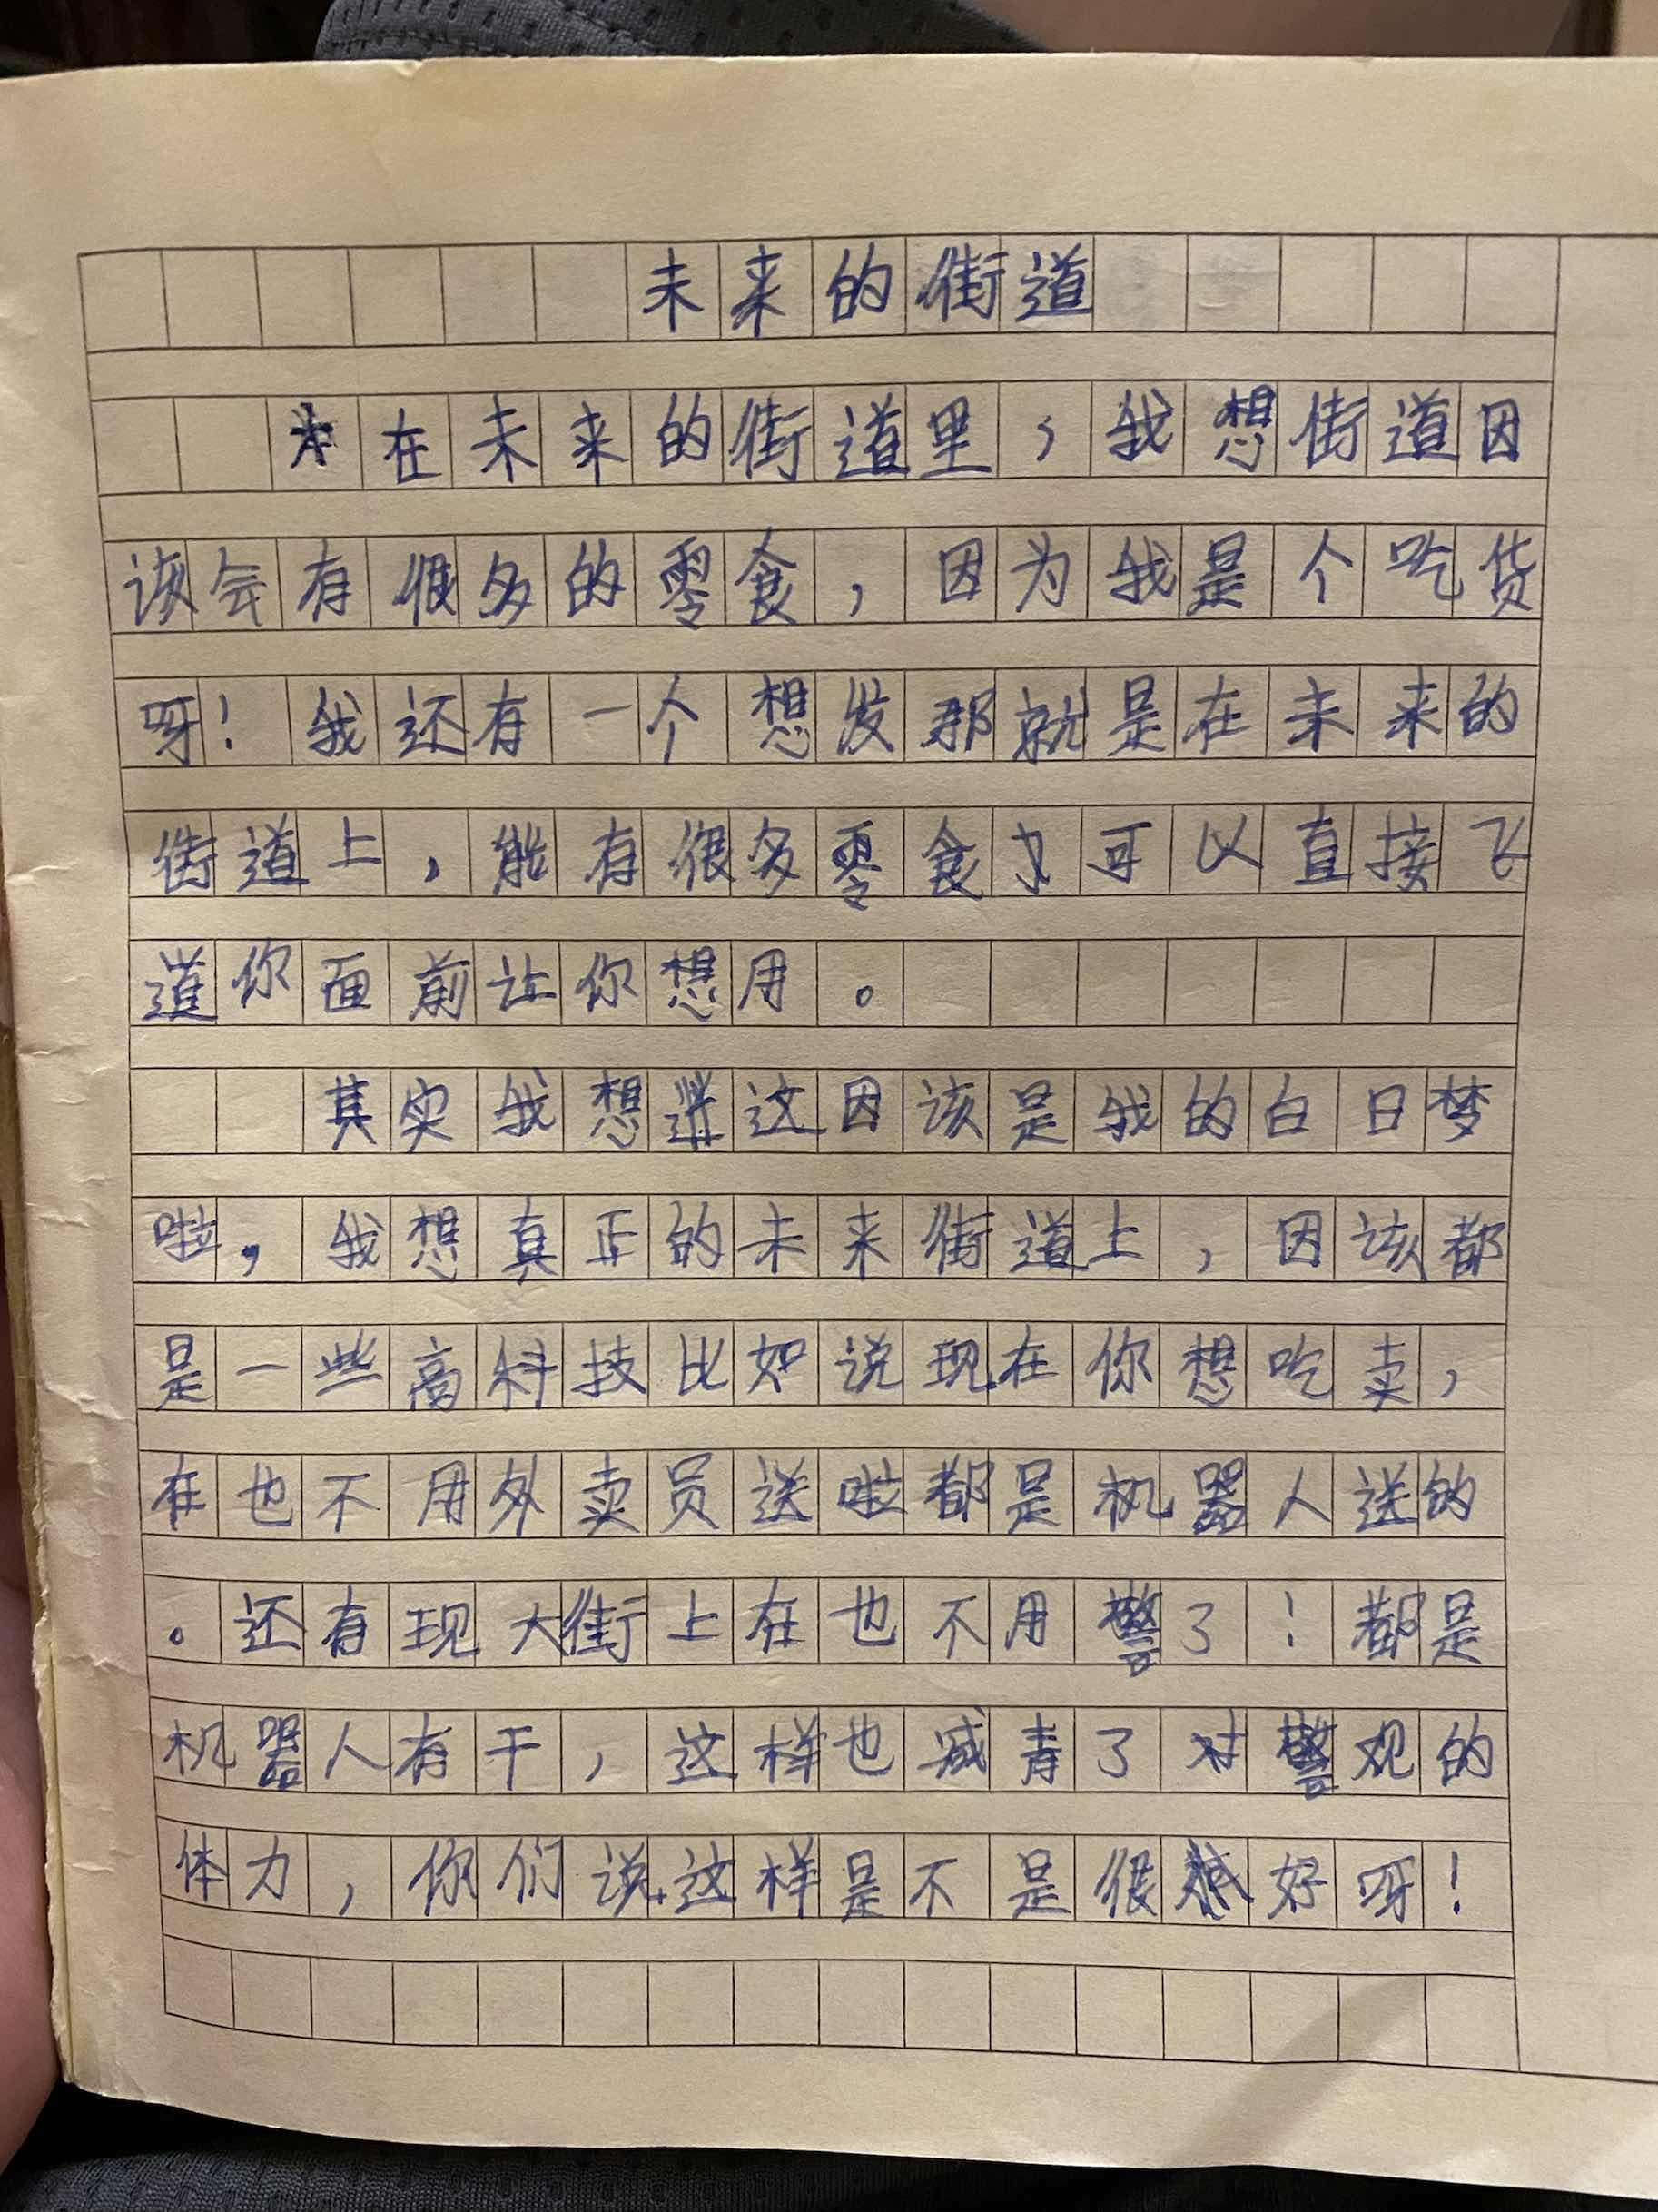 未来的街道
在未来的街道里，我想街道因
该会有很多的零食，因为我是个吃货
呀！我还有一个想发那就是在未来的
街道上，能有很多零食才可以直接飞
道你面前让你想用。
其实我想这因该是我的白日梦
啦，我想真正的未来街道上，因该都
是一些高科技比如说现在你想吃卖，
在也不用外卖员送啦都是机器人送的
。还有现大街上在也不用警了！都是
机器人有干，这样也减青了对警观的
体力，你们说这样是不是很好呀！